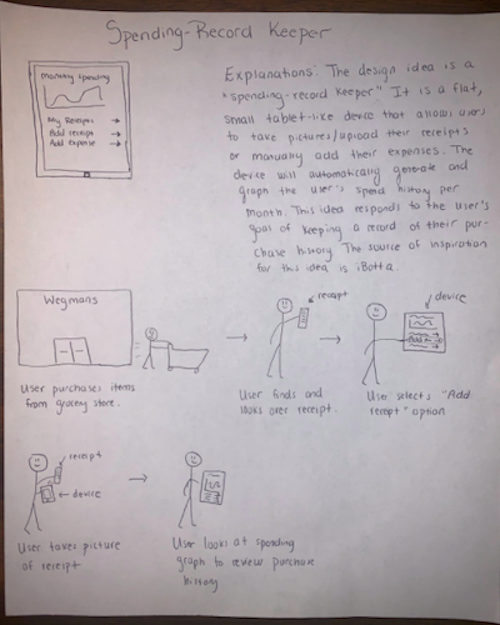 Spending-Record Keeper
Monthly Spending
My Receipts →
Add receipt →
Add Expense →
Explanation: The design idea is a
"spending-record keeper." It is a flat,
small tablet-like device that allows users
to take pictures/upload their receipts
or manually add their expenses. The
device will automatically generate and
graph the user's spend history per
month. This idea responds to the user's
goal of keeping a record of their pur-
chase history. The source of inspiration
for this idea is iBotta.
Wegmans
User purchases items
from grocery store.
receipt
User finds and
looks over receipt.
device
User selects "Add
receipt" option
receipt
device
User takes picture
of receipt
User looks at spending
graph to review purchase
history